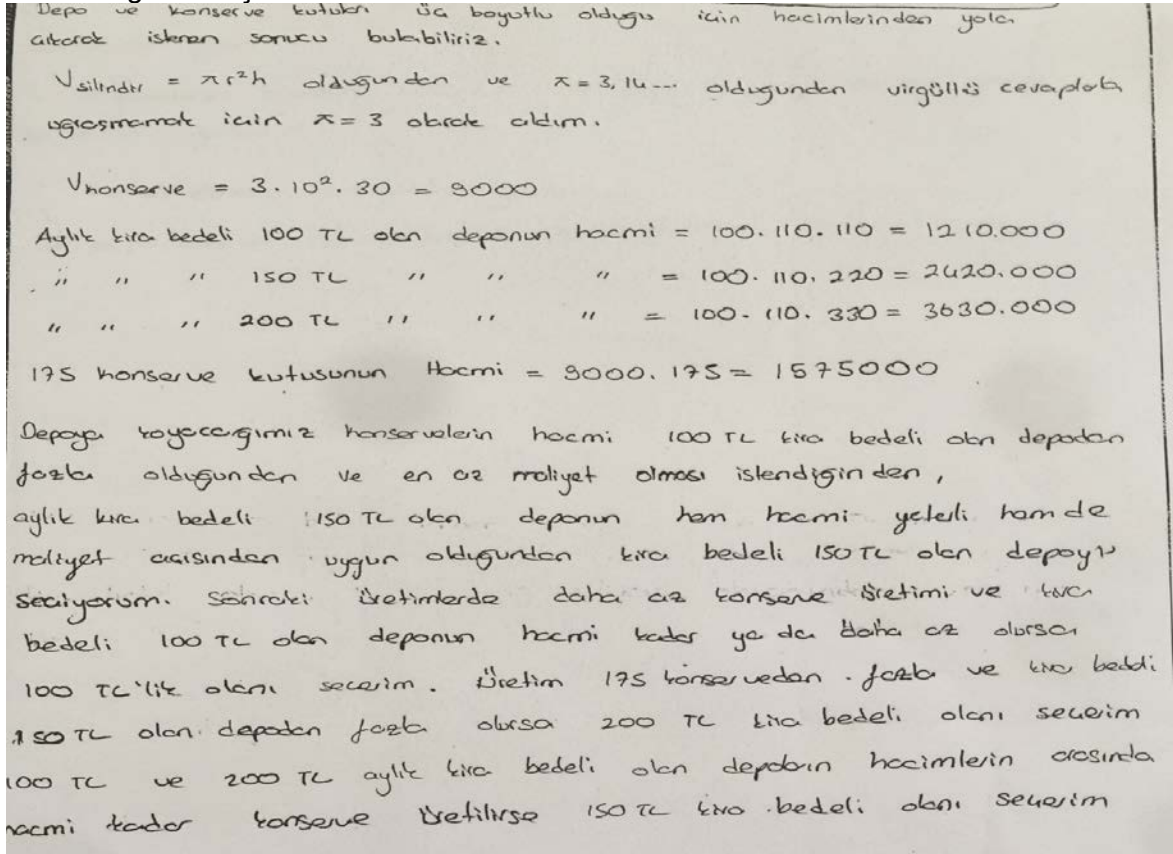 Depo ve konserve kutuları üç boyutlu olduğu için hacimlerinden yola
çıkarak istenen sonucu bulabiliriz.
Vsilindir = πr²h olduğundan ve π = 3,14... olduğundan virgüllü cevaplarla
uğraşmamak için π = 3 olarak aldım.
Vkonserve = 3.10².30 = 9000
Aylık kira bedeli 100 TL olan deponun hacmi = 100.110.110 = 1210.000
" " " 150 TL " " " = 100.110.220 = 2420.000
" " " 200 TL " " " = 100.110.330 = 3630.000
175 konserve kutusunun Hacmi = 9000.175 = 1575000
Depoya koyacağımız konservelerin hacmi 100 TL kira bedeli olan depodan
fazla olduğundan ve en az maliyet olması istendiğinden,
aylık kira bedeli 150 TL olan deponun hem hacmi yeterli hem de
maliyet açısından uygun olduğundan kira bedeli 150 TL olan depoyu
seçiyorum. Sonraki üretimlerde daha az konserve üretimi ve kira
bedeli 100 TL olan deponun hacmi kadar ya da daha az olursa
100 TL'lik olanı seçerim. Üretim 175 konserveden fazla ve kira bedeli
150 TL olan depodan fazla olursa 200 TL kira bedeli olanı seçerim
100 TL ve 200 TL aylık kira bedeli olan depoların hacimlerin arasında
hacmi kadar konserve üretilirse 150 TL kira bedeli olanı seçerim